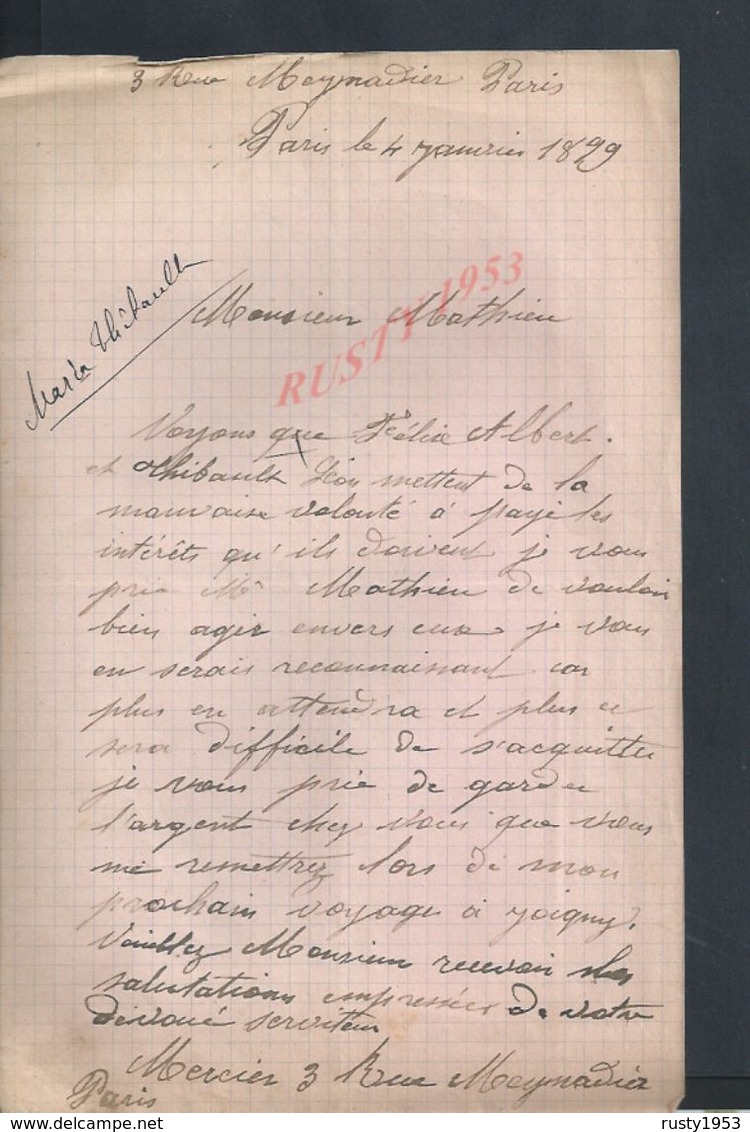 3 Rue Meynadier Paris
Paris le 4 janvier 1899
Maria Thibault
Monsieur Mathieu
RUSTY 1953
Voyons que Félix Albert.
et Thibault Léon mettent de la
mauvaise volonté à payé les
intérêts qu'ils doivent je vous
prie Mr Mathieu de vouloir
bien agir envers eux je vous
en serais reconnaissant car
plus en attendra et plus ce
sera difficile de s'acquitter
je vous prie de garder
l'argent chez vous que vous
me remettrez lors de mon
prochain voyage à Joigny.
Veuillez Monsieur recevoir les
salutations empressées de votre
dévoué serviteur
Mercier 3 Rue Meynadier
Paris
delcampe.net
rusty1953